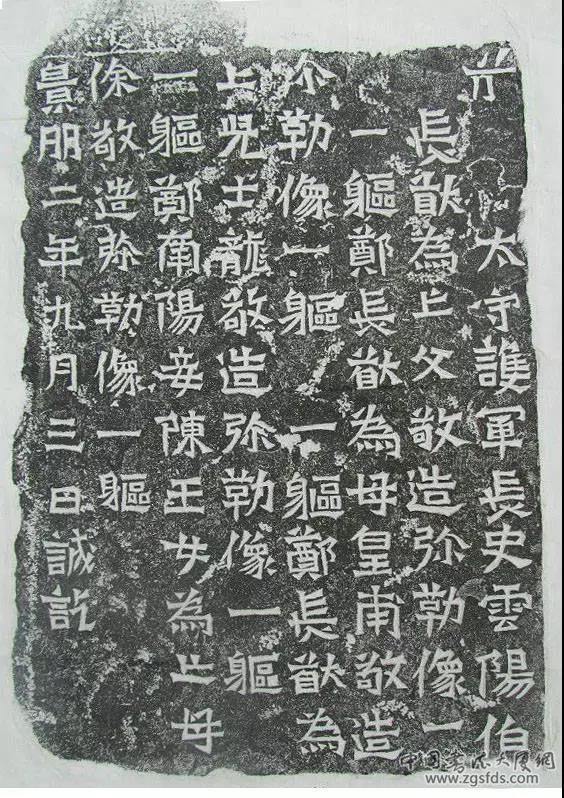 太守護軍長史雲陽伯
長猷為亡父敬造弥勒像一
一軀鄭長猷為母皇甫敬造
弥勒像一軀 一軀鄭長猷為
亡児士龍敬造弥勒像一軀
一軀鄭南陽妾陳王女為亡母
徐敬造弥勒像一軀
景明二年九月三日誡訖
中国书法大厦网
www.zgsfds.com